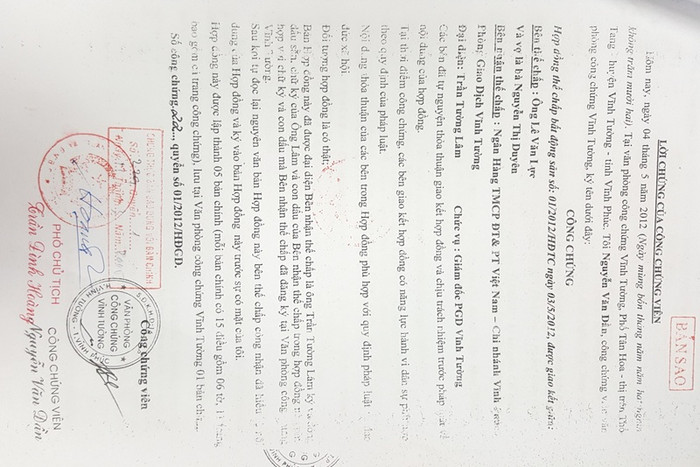 BẢN SAO
LỜI CHỨNG CỦA CÔNG CHỨNG VIÊN
Hôm nay, ngày 04 tháng 5 năm 2012 (Ngày mùng bốn tháng năm năm hai nghìn
không trăm mười hai). Tại văn phòng công chứng Vĩnh Tường, Phố Tân Hoa - thị trấn Thổ
Tang - huyện Vĩnh Tường - tỉnh Vĩnh Phúc. Tôi Nguyễn Văn Dân, công chứng viên văn
phòng công chứng Vĩnh Tường, ký tên dưới đây:
CÔNG CHỨNG
Hợp đồng thế chấp bất động sản số: 01/2012/HĐTC ngày 03/5/2012, được giao kết giữa:
Bên thế chấp : Ông Lê Văn Lực
Và vợ là bà Nguyễn Thị Duyên
Bên nhận thế chấp : Ngân Hàng TMCP ĐT& PT Việt Nam – Chi nhánh Vĩnh
Phòng Giao Dịch Vĩnh Tường
Đại diện: Trần Tường Lâm Chức vụ : Giám đốc PGD Vĩnh Tường
Các bên đã tự nguyện thỏa thuận giao kết hợp đồng và chịu trách nhiệm trước pháp luật về
nội dung của hợp đồng.
Tại thời điểm công chứng, các bên giao kết hợp đồng có năng lực hành vi dân sự phù hợp
theo quy định của pháp luật.
Nội dung thỏa thuận của các bên trong Hợp đồng phù hợp với quy định pháp luật
đức xã hội.
Đối tượng hợp đồng là có thật;
Bản Hợp đồng này đã được đại diện Bên nhận thế chấp là ông Trần Tường Lâm ký và đóng
dấu sẵn, chữ ký của Ông Lâm và con dấu của Bên nhận thế chấp trong hợp đồng
hợp với chữ ký và con dấu mà Bên nhận thế chấp đã đăng ký tại Văn phòng công chứng
Vĩnh Tường.
Sau khi tự đọc lại nguyên văn bản Hợp đồng này bên thế chấp công nhận đã hiểu rõ nội
dung của Hợp đồng và ký vào bản Hợp đồng này trước sự có mặt của tôi.
Hợp đồng này được lập thành 05 bản chính (mỗi bản chính có 15 điều gồm 06 tờ, 11 trang
bao gồm cả trang công chứng), lưu tại Văn phòng công chứng Vĩnh Tường 01 bản chính.
Số công chứng, quyển số 01/2012/HĐGD.
Công chứng viên
VĂN PHÒNG
CÔNG CHỨNG
VĨNH TƯỜNG
CÔNG CHỨNG VIÊN
Nguyễn Văn Dân
PHÓ CHỦ TỊCH
Trần Đình Hoàng